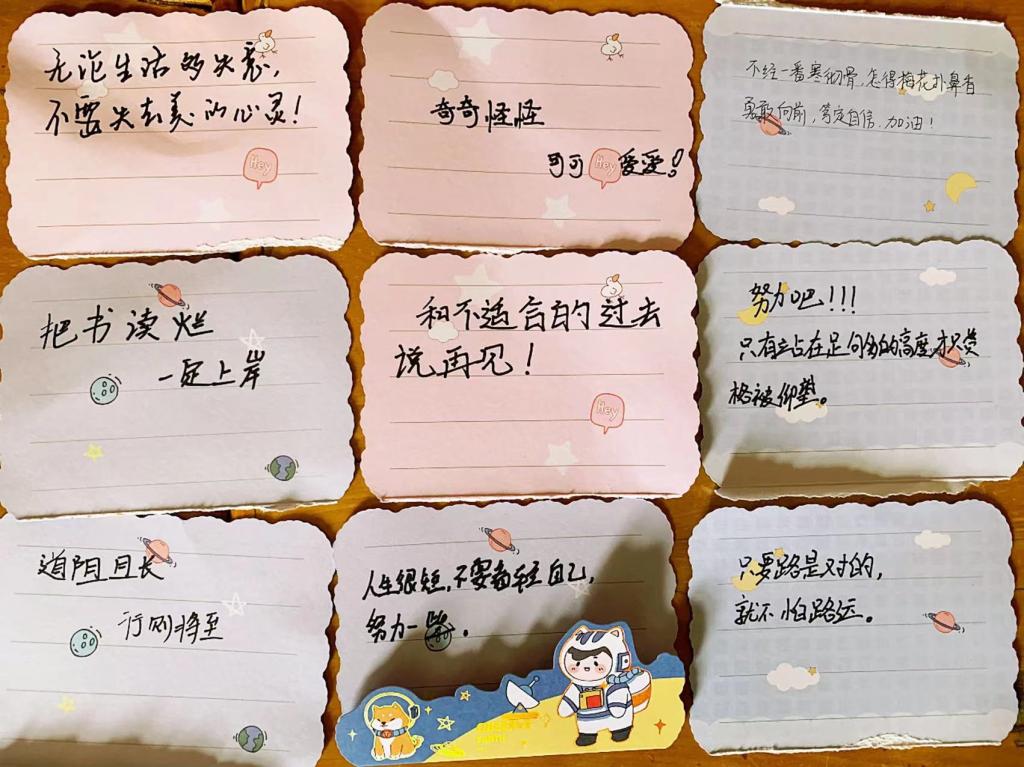 无论生活多失意,
不要失去美的心灵!
Hey
奇奇怪怪
可可爱爱!
Hey
不经一番寒彻骨,怎得梅花扑鼻香
勇敢向前,笃定自信.加油!
把书读烂
一定上岸
和不适合的过去
说再见!
Hey
努力吧!!!
只有站在足够的高度,才只资
格被仰望。
道阻且长
行则将至
人生很短,不要看轻自己,
努力一些。
只要路是对的,
就不怕路远。